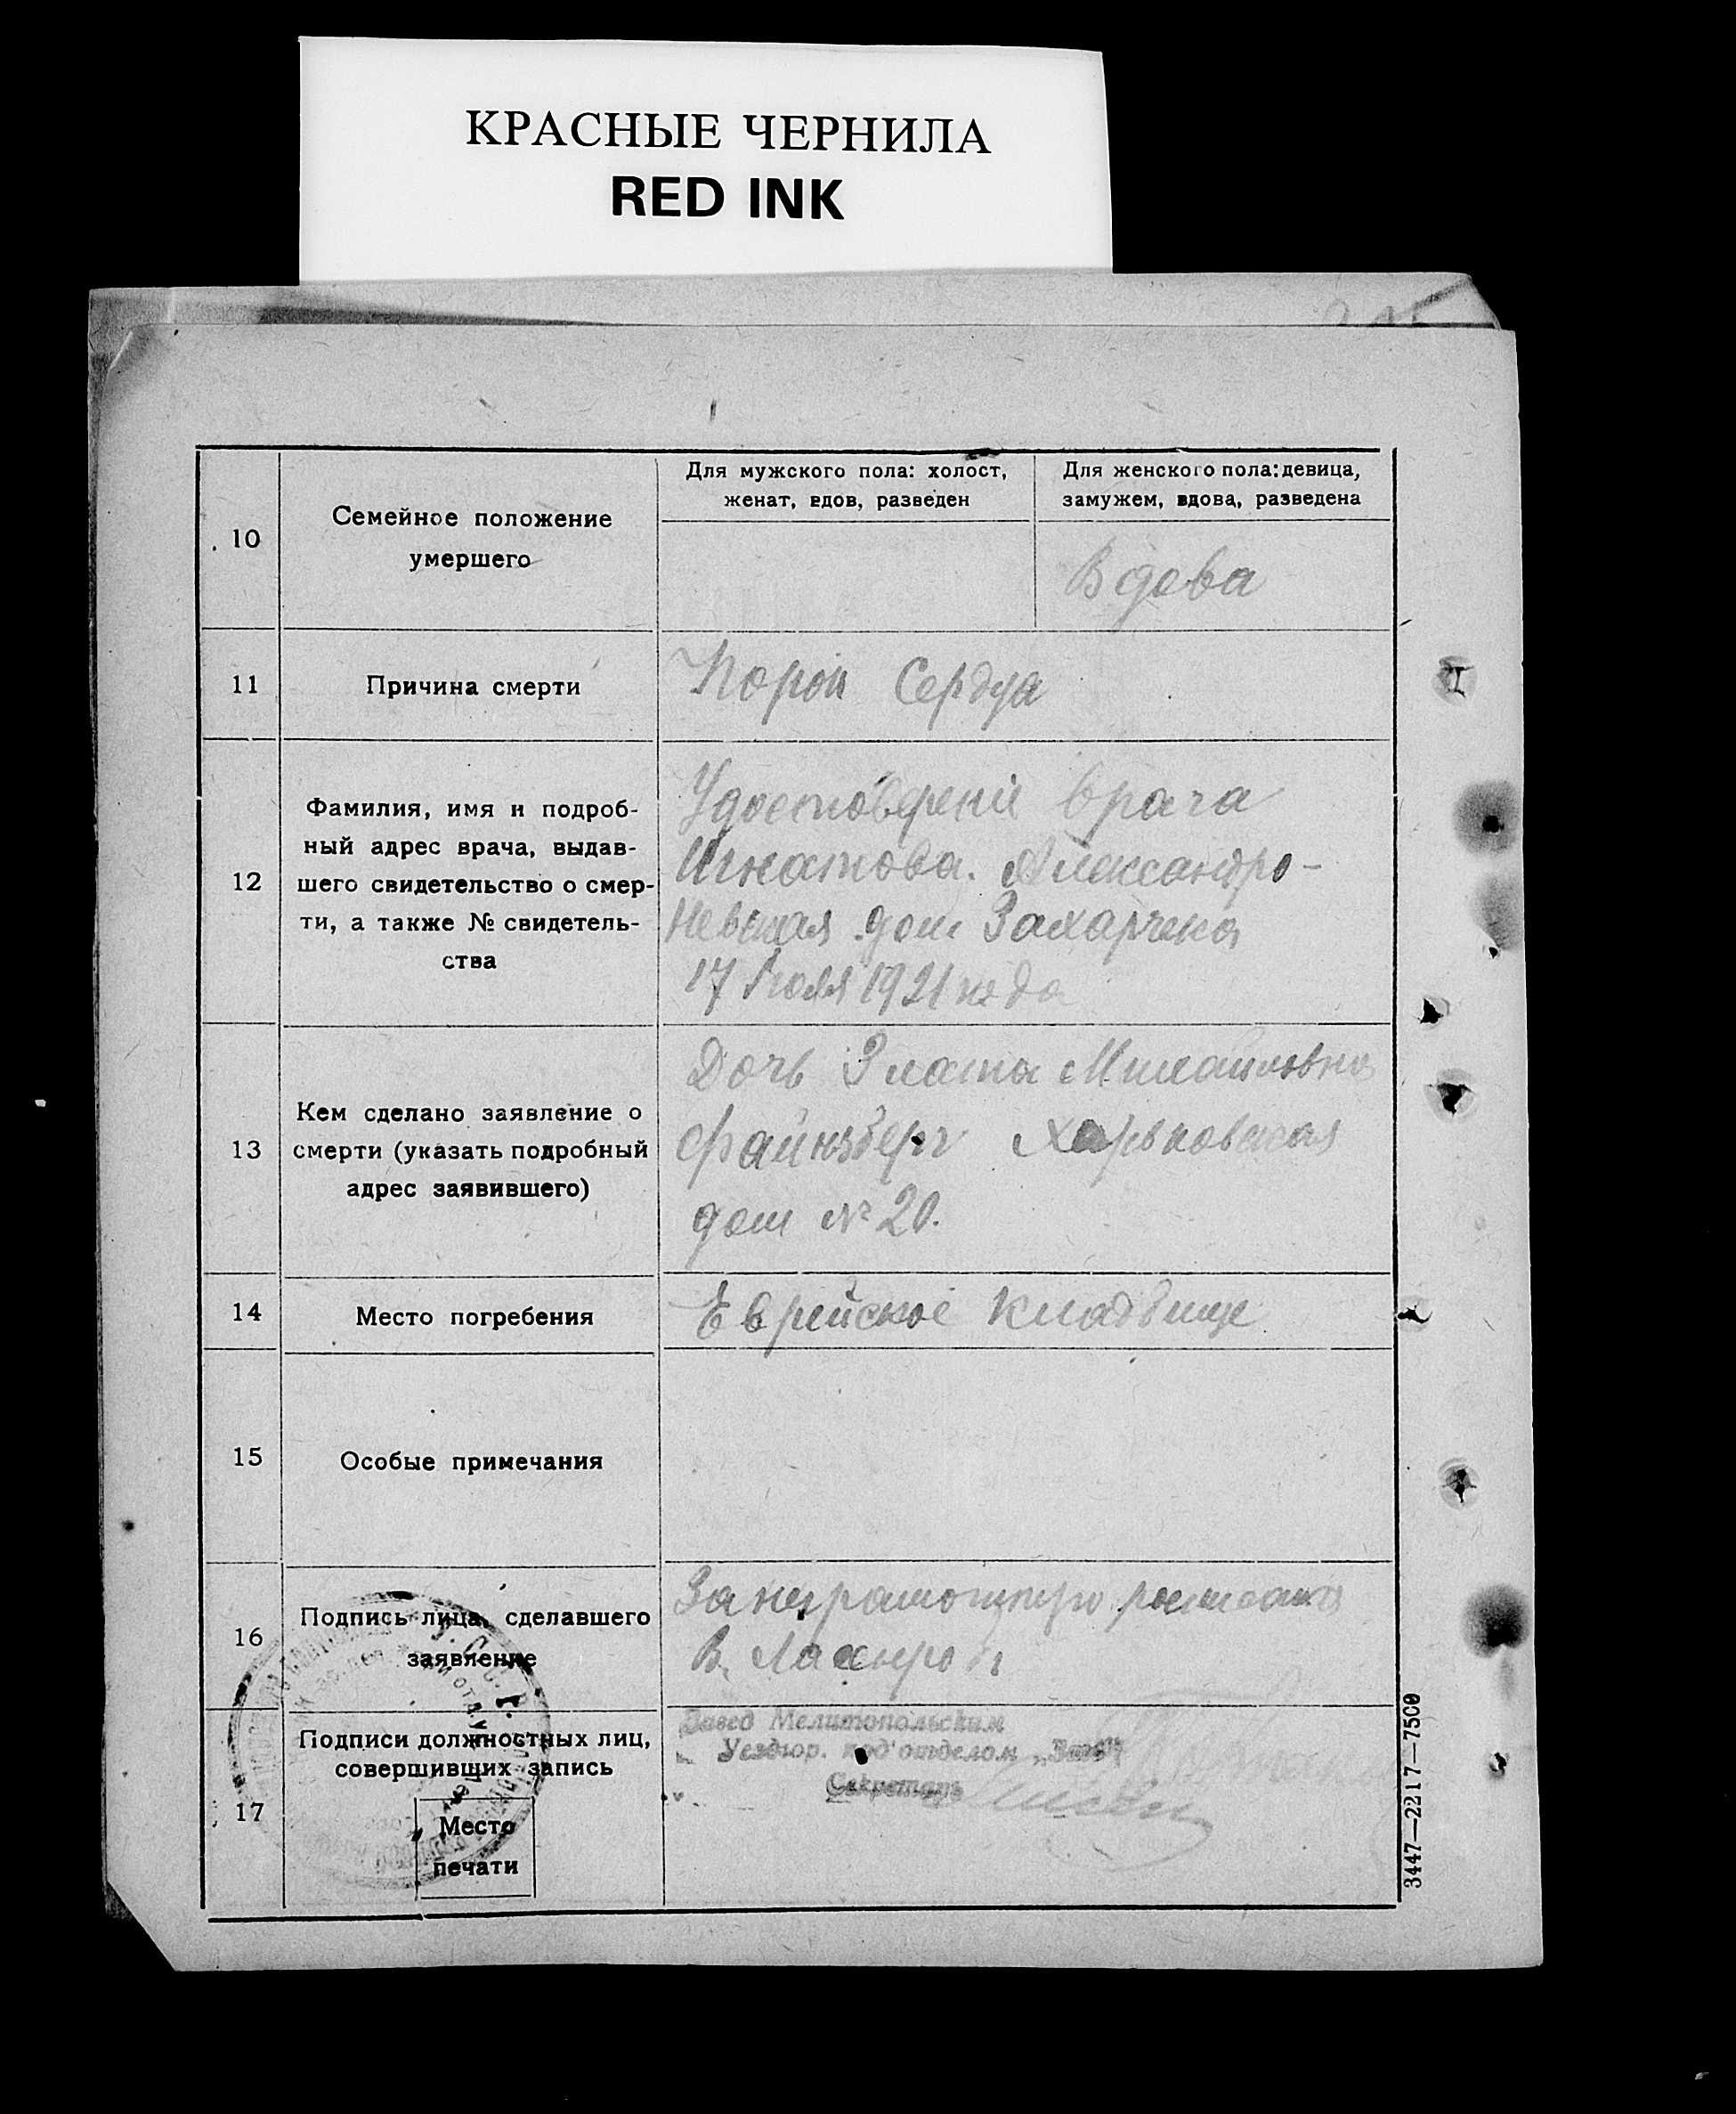 КРАСНЫЕ ЧЕРНИЛА
RED INK
10
Семейное положение
умершего
Для мужского пола: холост,
женат, вдов, разведен
Для женского пола: девица,
замужем, вдова, разведена
Вдова
11
Причина смерти
Порок Сердца
12
Фамилия, имя и подроб-
ный адрес врача, выдав-
шего свидетельство о смер-
ти, а также № свидетель-
ства
Удостоверение врача
Игнатова. Александро-
Невская дом Захарченка
17 Июля 1921 года
13
Кем сделано заявление о
смерти (указать подробный
адрес заявившего)
Дочь Злата Михайловна
Файнзберг Харьковская
дом № 20.
14
Место погребения
Еврейское Кладбище
15
Особые примечания
16
Подпись лица, сделавшего
заявление
За неграмотную
В.
17
Подписи должностных лиц,
совершивших запись
Место
печати
Завед Мелитопольским
Уездгор. под'отделом „Загс"
Секретарь
3447—2217—7500